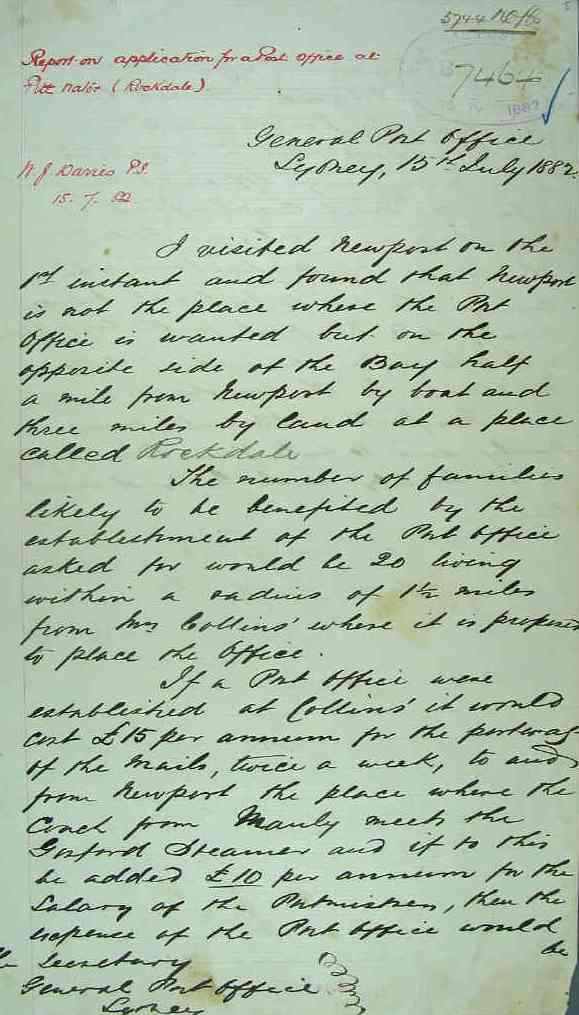 5744
Report on application for a Post Office at
Pitt Water (Rockdale).
7464
1882
General Post Office
Sydney, 15th July 1882.
N J Davies P.I.
15. 7. 82
I visited Newport on the
1st instant and found that Newport
is not the place where the Post
Office is wanted but on the
opposite side of the Bay half
a mile from Newport by boat and
three miles by land at a place
called Rockdale
The number of families
likely to be benefited by the
establishment of the Post Office
asked for would be 20 living
within a radius of 1½ miles
from Mrs Collins' where it is proposed
to place the Office.
If a Post Office were
established at Collins' it would
cost £15 per annum for the portwag
of the Mails, twice a week, to and
from Newport the place where the
Coach from Manly meets the
Gosford Steamer and if to this
be added £10 per annum for the
Salary of the Postmistress, then the
expense of the Post Office would
be
The Secretary
General Post Office
Sydney